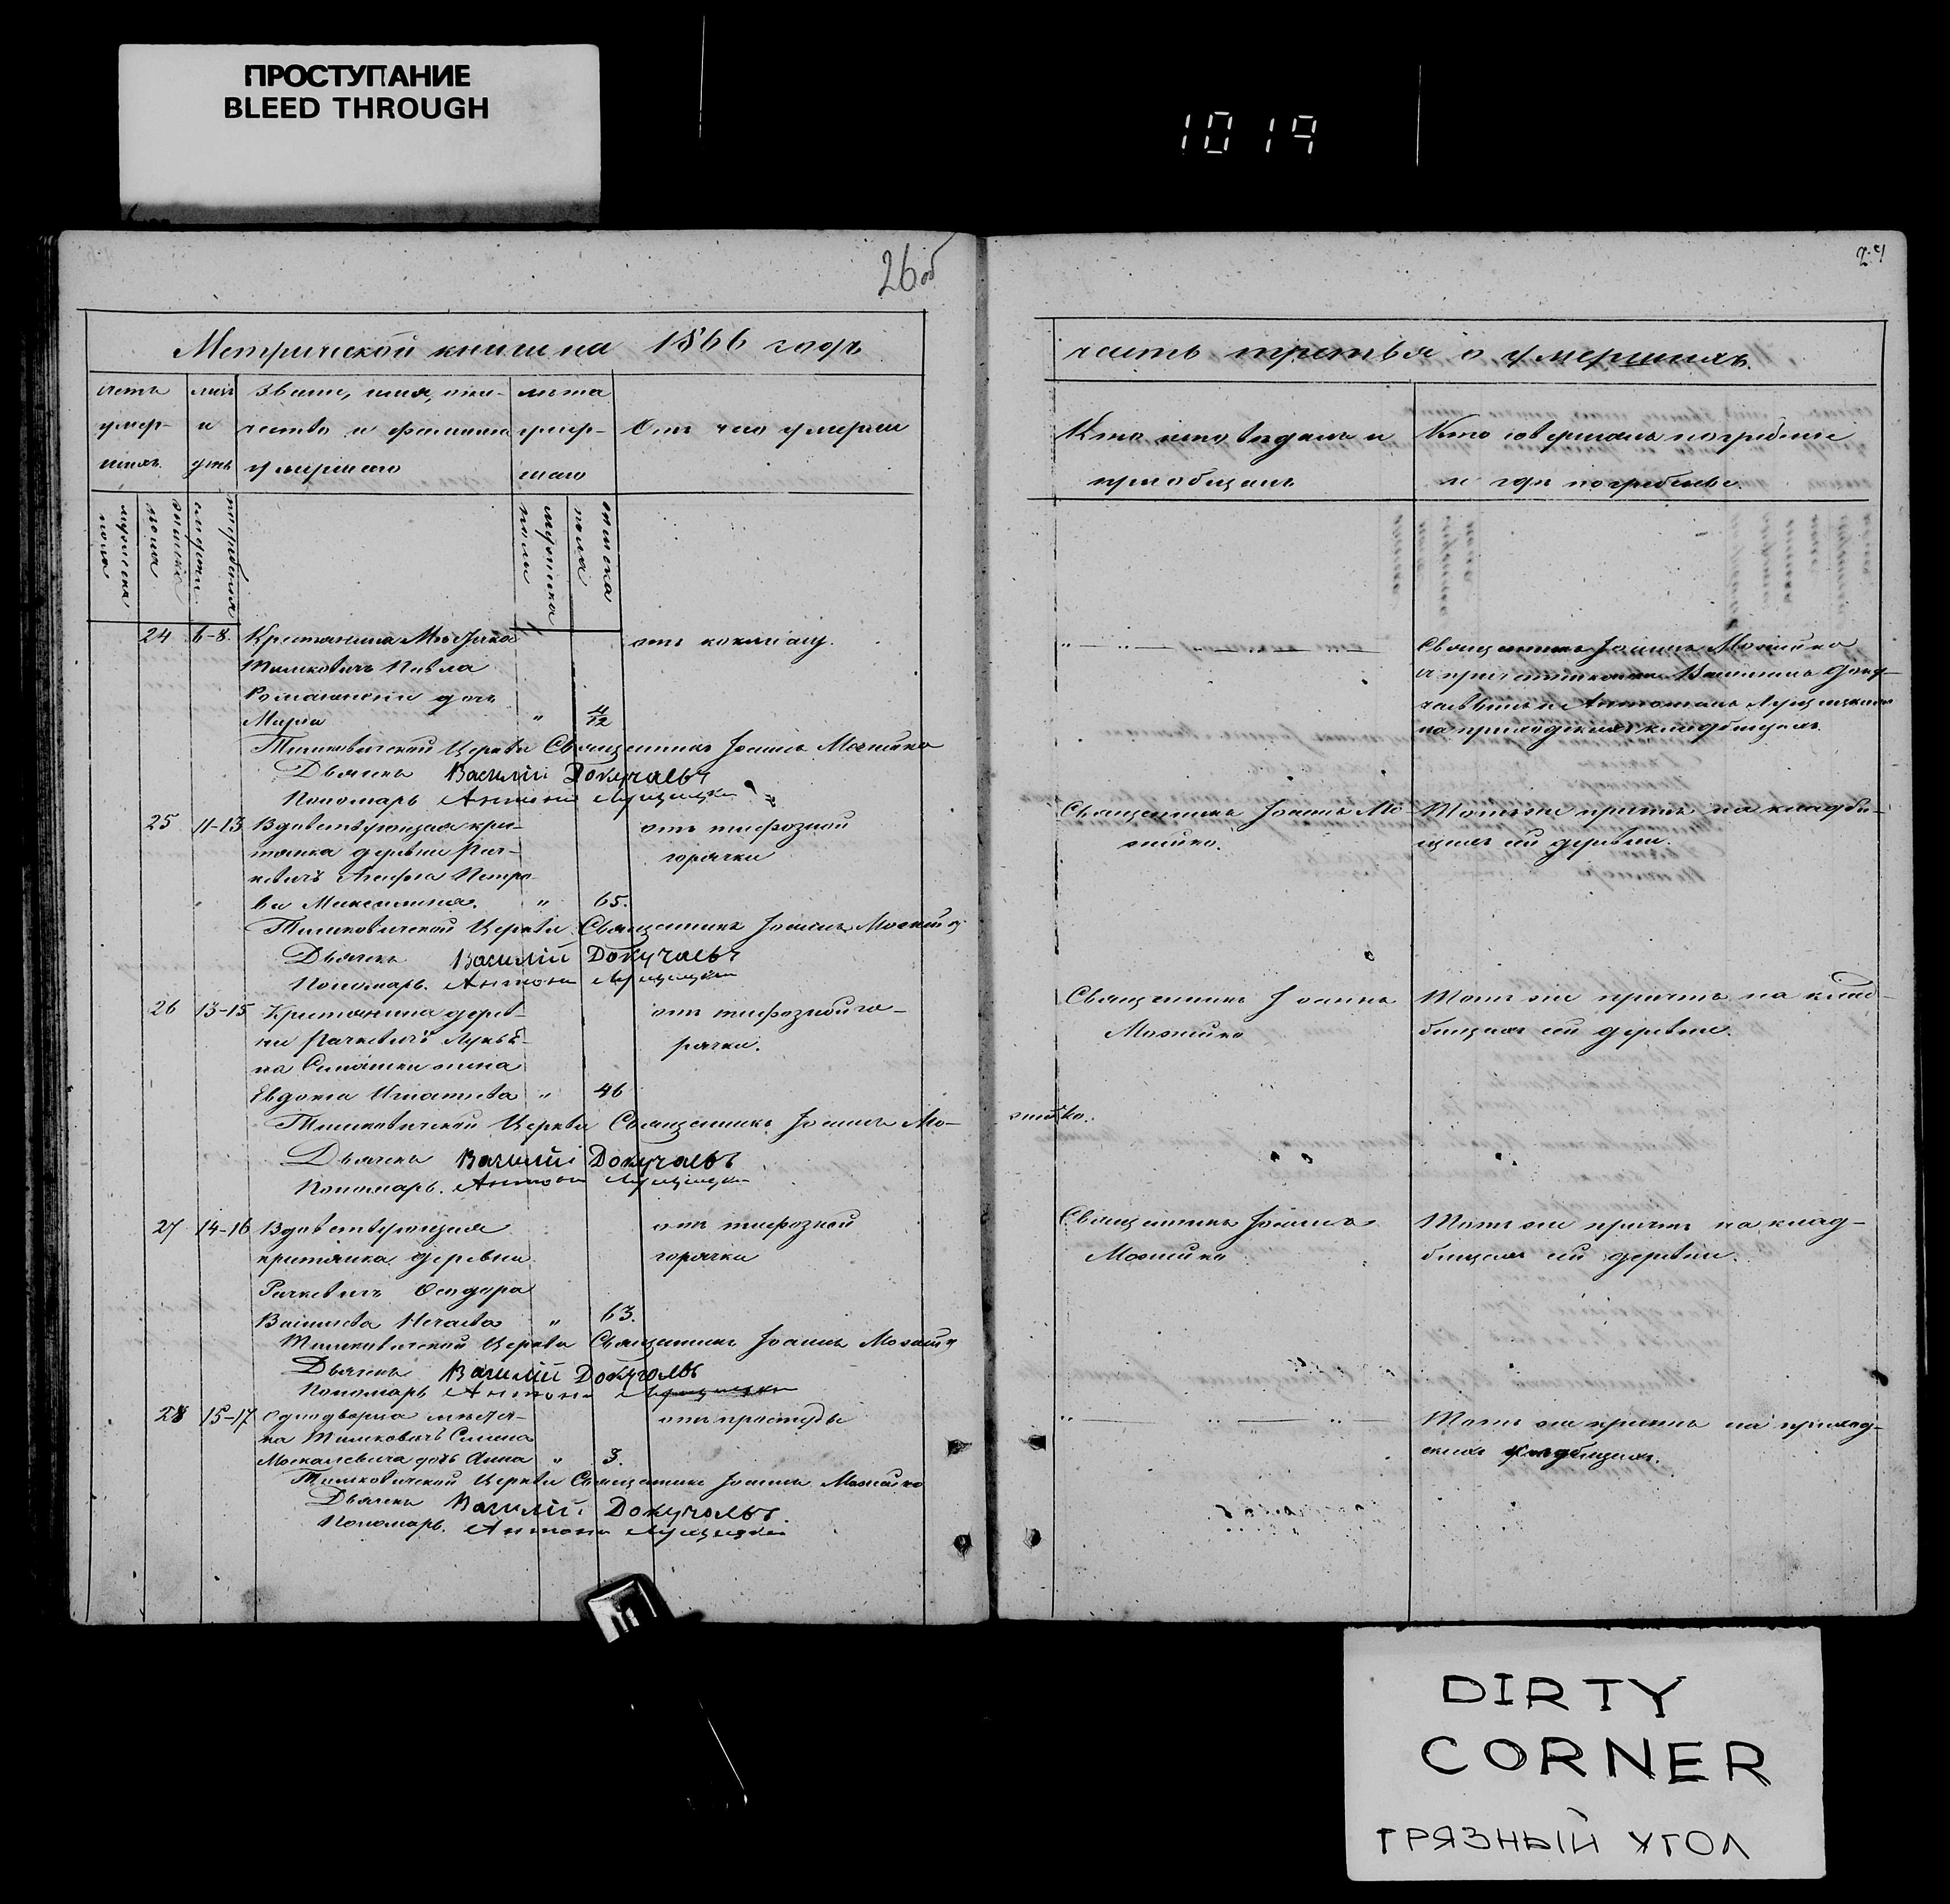 ПРОСТУПАНИЕ
BLEED THROUGH
1019
26 об
Метрической книги на 1866 годъ
часть третья о умершихъ.
счетъ умер- шихъ.
мѣс. и день
Званіе, имя, отче- ство и фамилія умершаго
лѣта умер- шаго
Отъ чего умерли
Кто исповѣдалъ и
пріобщалъ
Кто совершалъ погребеніе
и гдѣ погребены.
мужеска пола
женска пола
смерти
погребенія
мужеска пола
женска пола
24 6-8. Крестьянина Мѣстечка
Тимковичъ Павла
дочь
Марія " 4/12
отъ коклюшу.
Священникъ Іоаннъ
съ причетниками Василіемъ Доку-
чаевымъ и Антономъ
на приходскихъ кладбищахъ.
Тимковичской Церкви Священникъ Іоаннъ
Дьячекъ Василій Докучаевъ
Пономарь Антоній
25 11-13 Вдовствующая крес-
тьянка деревни Рач-
кевичъ Агафія Петро-
ва " 65.
отъ тифозной
горячки
Священникъ Іоаннъ
Тотъ же причтъ на кладби-
щахъ сей деревни.
Тимковичской Церкви Священникъ Іоаннъ
Дьячекъ Василій Докучаевъ
Пономарь. Антоній
26 13-15 Крестьянина дерев-
ни Рачкевичъ
жена
Евдокія Игнатьева " 46
отъ тифозной го-
рячки.
Священникъ Іоаннъ
Тотъ же причтъ на клад-
бищахъ сей деревни.
Тимковичской Церкви Священникъ Іоаннъ
Дьячекъ Василій Докучаевъ
Пономарь. Антоній
27 14-16 Вдовствующая
крестьянка деревни
Рачкевичъ Феодора
Васильева " 63.
отъ тифозной
горячки
Священникъ Іоаннъ
Тотъ же причтъ на клад-
бищахъ сей деревни.
Тимковичской Церкви Священникъ Іоаннъ
Дьячекъ Василій Докучаевъ
Пономарь Антоній
28 15-17 Однодворца мѣстеч-
ка Тимковичъ
дочь Анна " 3.
отъ простуды
Тотъ же причтъ на приход-
скихъ кладбищахъ.
Тимковичской Церкви Священникъ Іоаннъ
Дьячекъ Василій Докучаевъ.
Пономарь. Антоній
DIRTY
CORNER
ГРЯЗНЫЙ УГОЛ